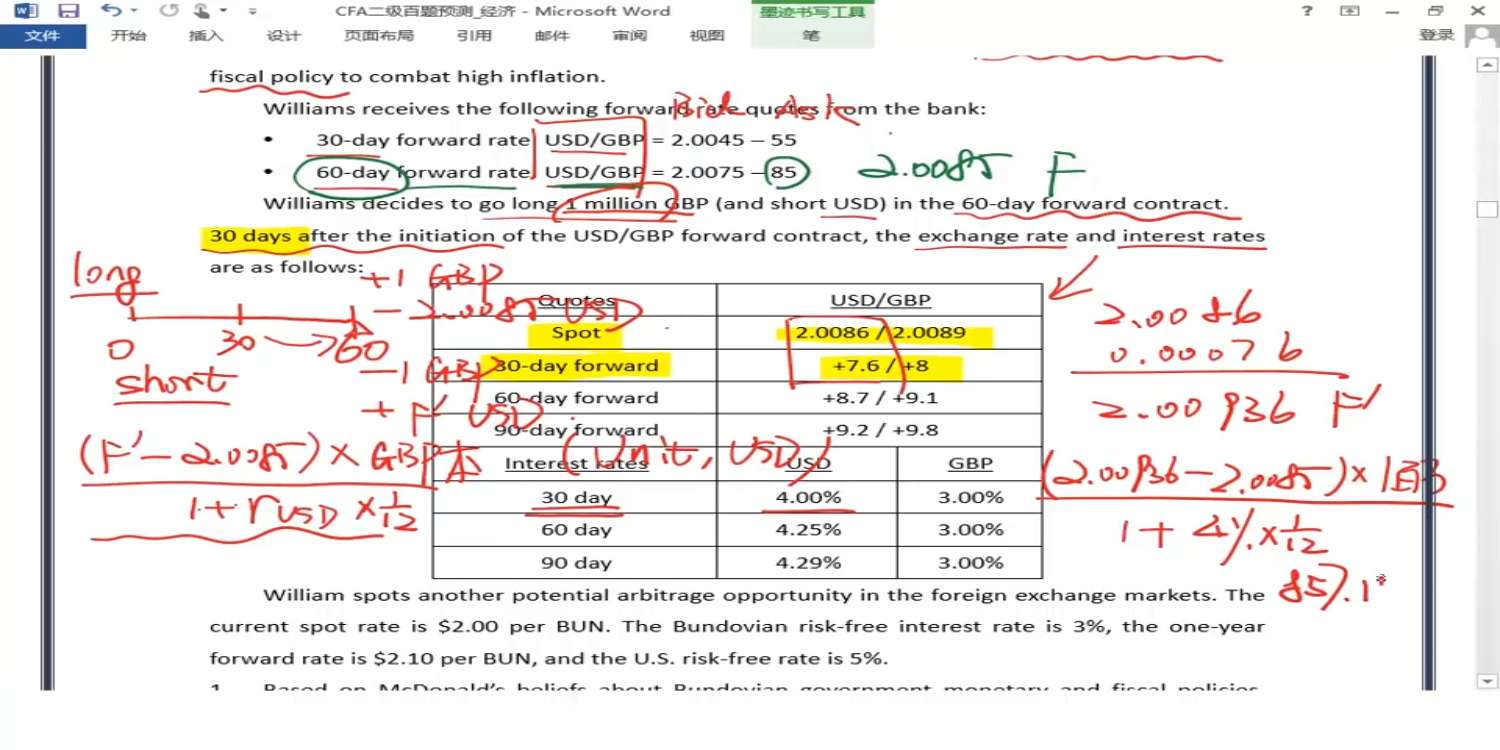 CFA二级百题预测_经济 - Microsoft Word
墨迹书写工具
文件 开始 插入 设计 页面布局 引用 邮件 审阅 视图 笔 登录
fiscal policy to combat high inflation.
Williams receives the following forward rate quotes from the bank:
Bid Ask
• 30-day forward rate USD/GBP = 2.0045 – 55
• 60-day forward rate USD/GBP = 2.0075 – 85
2.0085 F
Williams decides to go long 1 million GBP (and short USD) in the 60-day forward contract.
30 days after the initiation of the USD/GBP forward contract, the exchange rate and interest rates
are as follows:
long
0 30 60
short
+1 GBP
- 2.0085 USD
-1 GBP
+ F' USD
(F' - 2.0085) × GBP本 (Unit, USD)
1 + rUSD × 1/12
Quotes USD/GBP
Spot 2.0086 / 2.0089
30-day forward +7.6 / +8
60-day forward +8.7 / +9.1
90-day forward +9.2 / +9.8
Interest rates USD GBP
30 day 4.00% 3.00%
60 day 4.25% 3.00%
90 day 4.29% 3.00%
2.0086
0.00076
2.00936 F'
(2.00936 - 2.0085) × 1百万
1 + 4% × 1/12
857.1
William spots another potential arbitrage opportunity in the foreign exchange markets. The
current spot rate is $2.00 per BUN. The Bundovian risk-free interest rate is 3%, the one-year
forward rate is $2.10 per BUN, and the U.S. risk-free rate is 5%.
1. Based on McDonald's beliefs about Bundovian government monetary and fiscal policies,